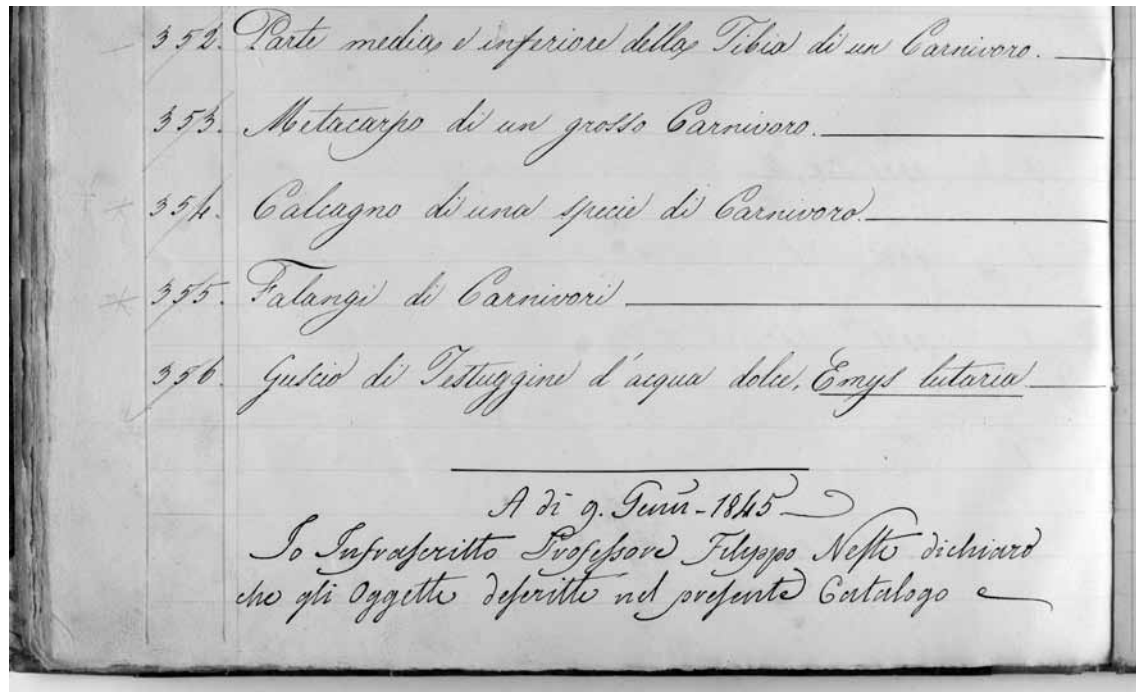 352. Parte media e inferiore della Tibia di un Carnivoro.
353. Metacarpo di un grosso Carnivoro.
354. Calcagno di una specie di Carnivoro.
355. Falangi di Carnivori
356. Guscio di Testuggine d'acqua dolce. Emys lutaria
A dì 9. Genn - 1845
Io Infrascritto Professore Filippo Nesti dichiaro
che gli Oggetti descritti nel presente Catalogo e